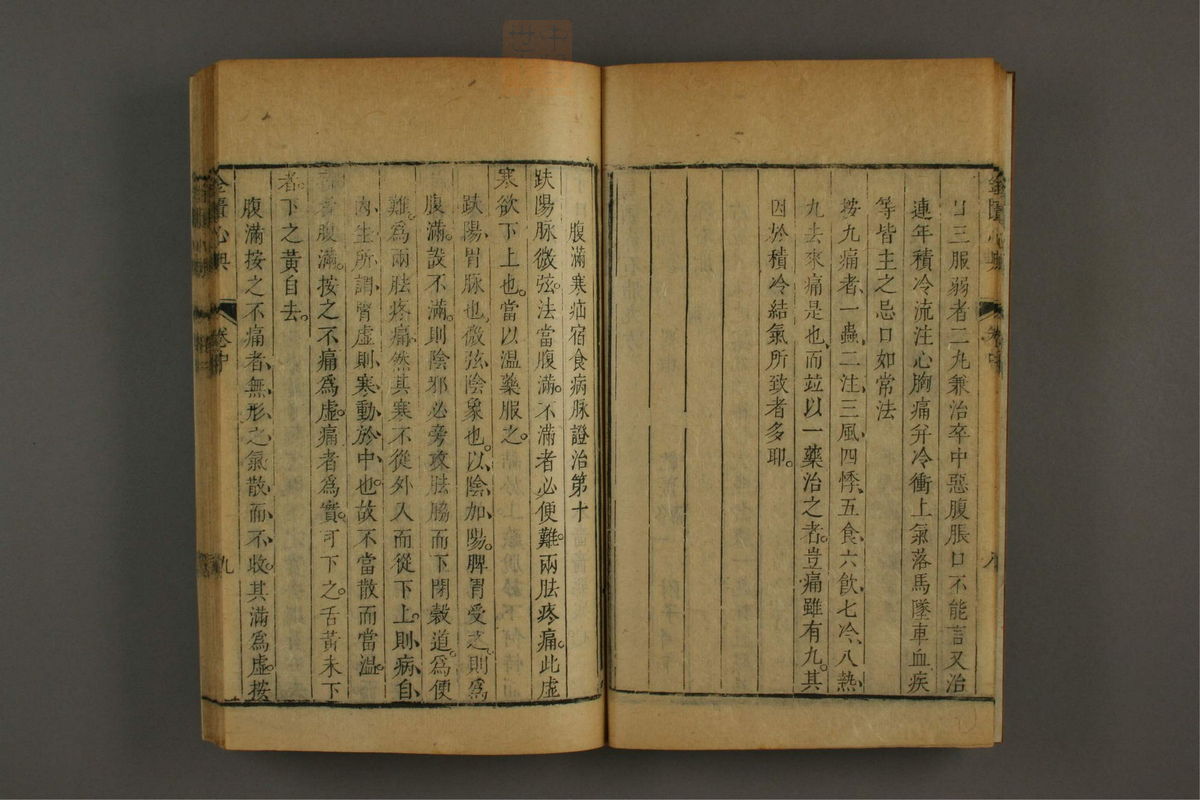 日三服弱者二丸兼治卒中惡腹脹口不能言又治
連年積冷流注心胸痛并冷衝上氣落馬墜車血疾
等皆主之忌口如常法
按九痛者、一蟲、二注、三風、四悸、五食、六飲、七冷、八熱、
九去來痛是也、而竝以一藥治之者。豈痛雖有九。其
因於積冷結氣所致者多耶。
金匱心典
卷中
八
腹滿寒疝宿食病脉證治第十
趺陽脉微弦。法當腹滿。不滿者必便難。兩胠疼痛。此虛
寒欲下上也。當以温藥服之。
趺陽、胃脉也、微弦、陰象也。以、陰加、陽。脾胃受之、則爲
腹滿。設不滿。則陰邪必旁攻胠脇而下閉穀道。爲便
難。爲兩胠疼痛。然其寒不從外入而從下上。則、病、自、
內、生、所、謂、腎虛、則、寒、動、於、中、也。故不當散而當温。
病者腹滿。按之不痛爲虛。痛者爲實。可下之。舌黃未下
者。下之黃自去。
腹滿按之不痛者、無、形、之、氣、散、而、不、收。其滿爲虛。按
金匱心典
卷中
九